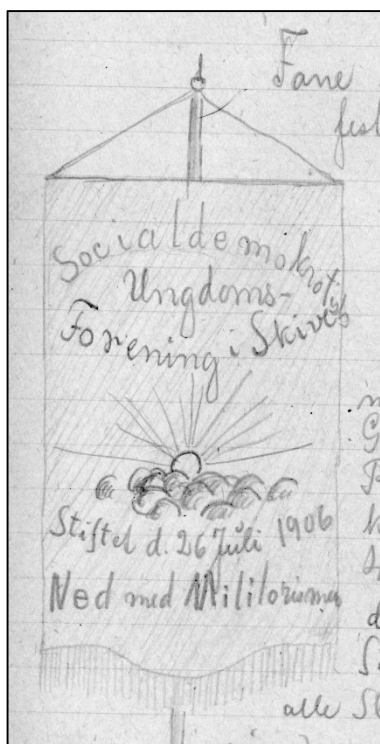 Fane
fest
Socialdemokratisk
Ungdoms-
Forening i Skive
Stiftet d. 26 Juli 1906
Ned med Militarismen
alle